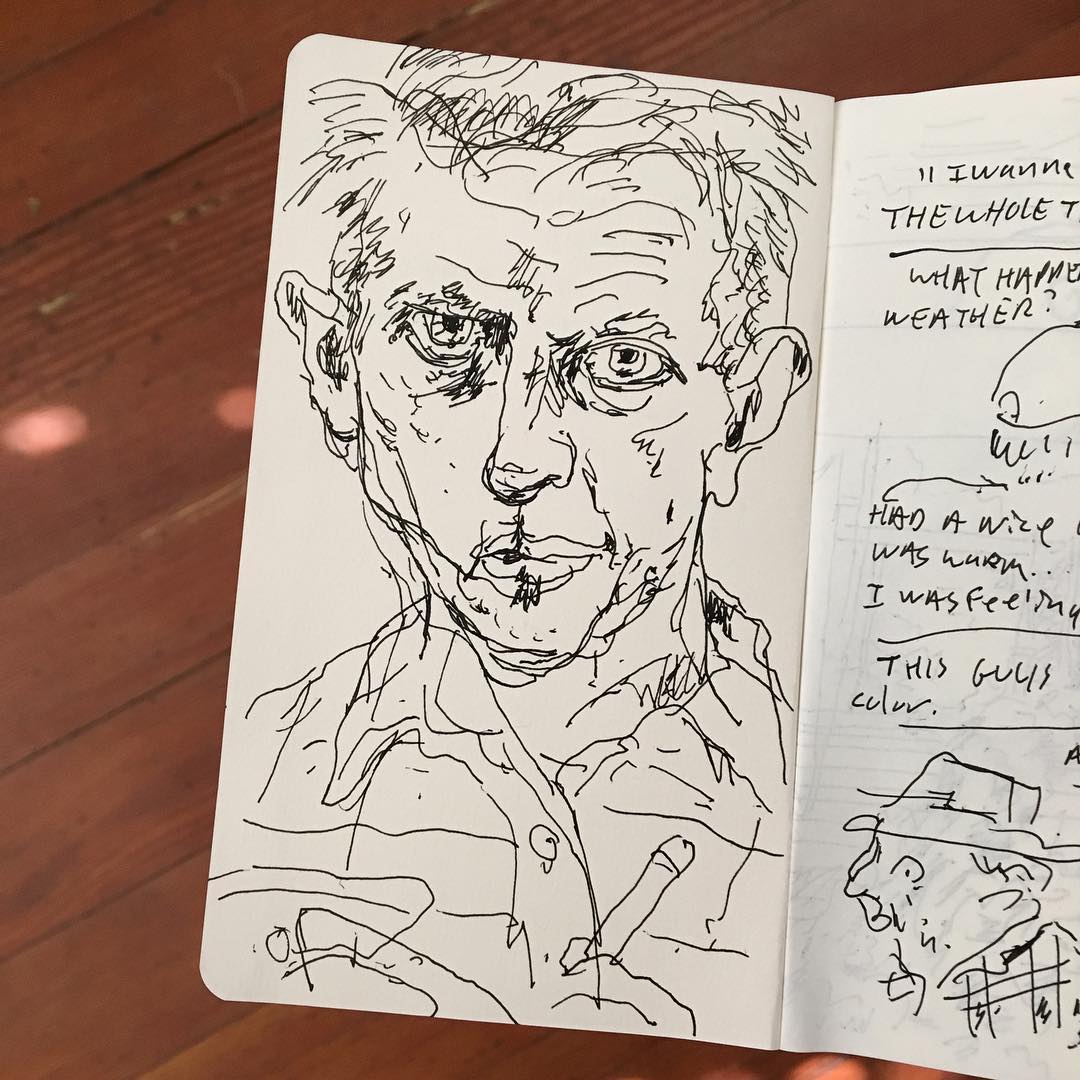 "I wanna
THE WHOLE T
WHAT HAPPE
WEATHER?
HAD A nice
WAS WARM..
I WAS Feeling
THIS GUYS
color.
A